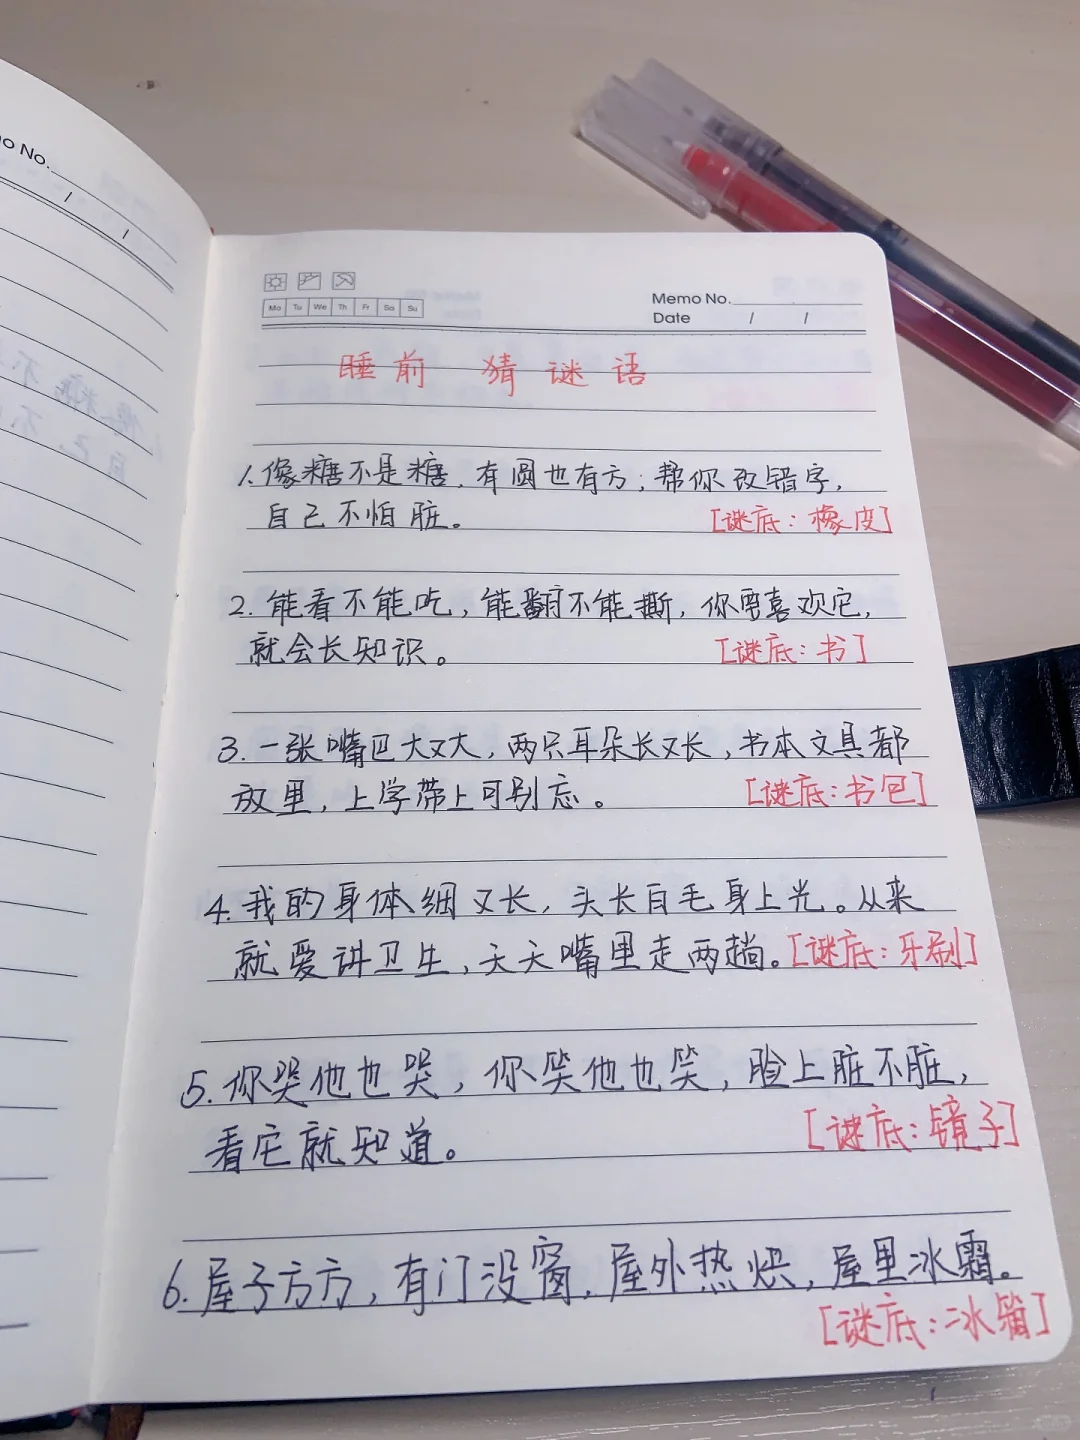 o No.
/ /
Mo Tu We Th Fr Sa Su
Memo No.
Date / /
睡前 猜谜语
1.像糖不是糖,有圆也有方;帮你改错字,
自己不怕脏。 [谜底:橡皮]
2.能看不能吃,能翻不能撕,你要喜欢它,
就会长知识。 [谜底:书]
3.一张嘴巴大又大,两只耳朵长又长,书本文具都
放里,上学带上可别忘。 [谜底:书包]
4.我的身体细又长,头长白毛身上光。从来
就爱讲卫生,天天嘴里走两趟。[谜底:牙刷]
5.你哭他也哭,你笑他也笑,脸上脏不脏,
看它就知道。 [谜底:镜子]
6.屋子方方,有门没窗,屋外热烘,屋里冰霜。
[谜底:冰箱]